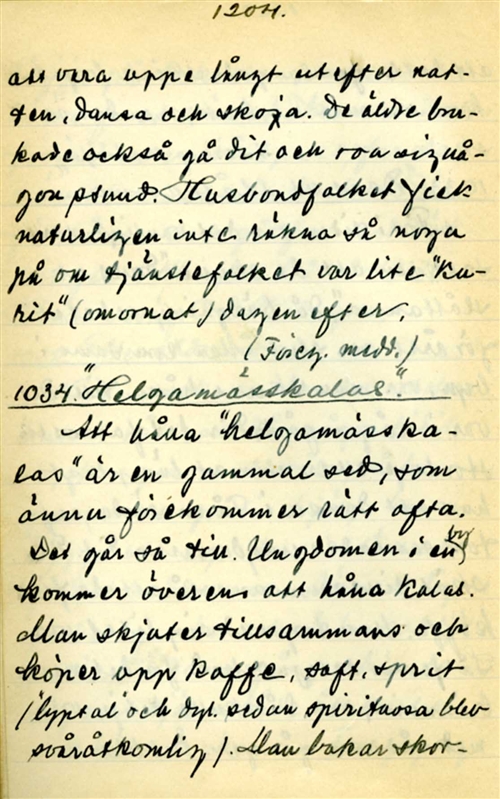 1204.
att vara uppe långt ut efter nat-
ten, dansa och skoja. De äldre bru-
kade också gå dit och roa sig nå-
gon stund. Husbondfolket fick
naturligen inte räkna så noga
på om tjänstefolket var lite "ku-
rit" (omornat) dagen efter.
(Föreg. medd.)
1034. "Helgamässkalas."
Att håna "helgamässka-
las" är en gammal sed, som
ännu förekommer rätt ofta.
Det går så till. Ungdomen i en by
kommer överens att håna kalas.
Man skjuter tillsammans och
köper upp kaffe, saft, sprit
("lyptol" och dyl. sedan spirituosa blev
svåråtkomlig). Man bakar skor-